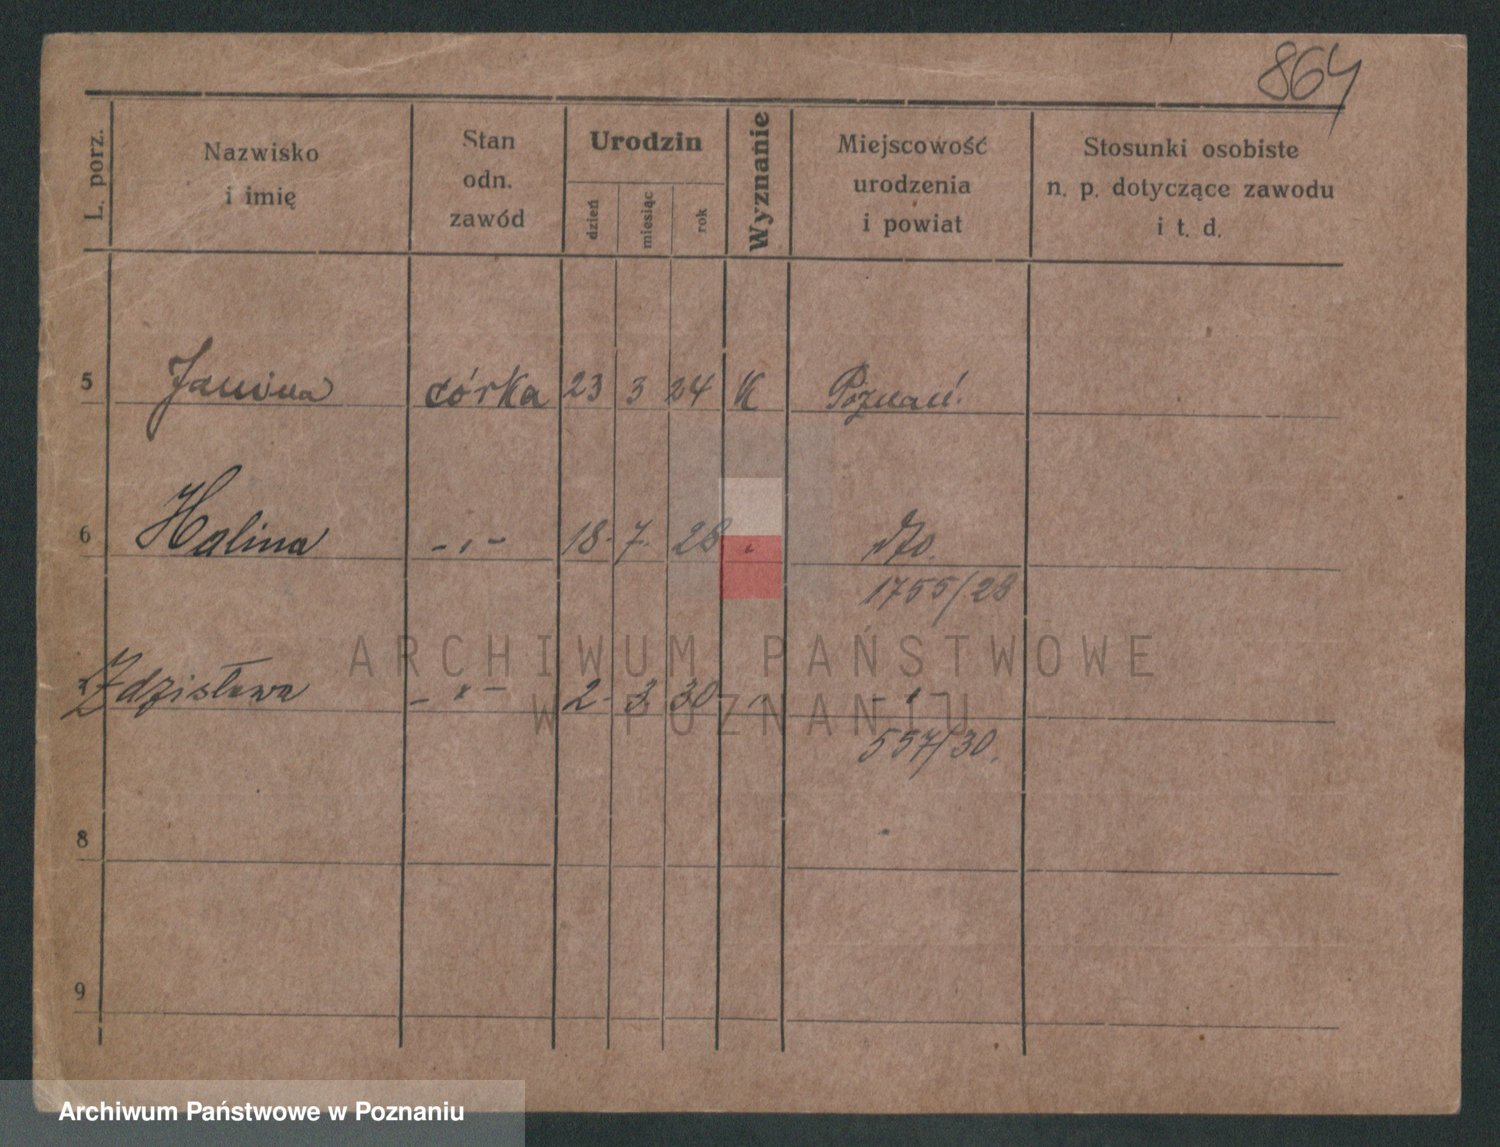 864
L. porz.
Nazwisko
i imię
Stan
odn.
zawód
Urodzin
dzień
miesiąc
rok
Wyznanie
Miejscowość
urodzenia
i powiat
Stosunki osobiste
n. p. dotyczące zawodu
i t. d.
5 Janina córka 23 3 24 K Poznań.
6 Halina - „ - 18. 7. 28 „ dto.
1755/28
Zdzisława - „ - 2. 3. 30 „ - „ -
557/30.
8
9
ARCHIWUM PAŃSTWOWE
W POZNANIU
Archiwum Państwowe w Poznaniu